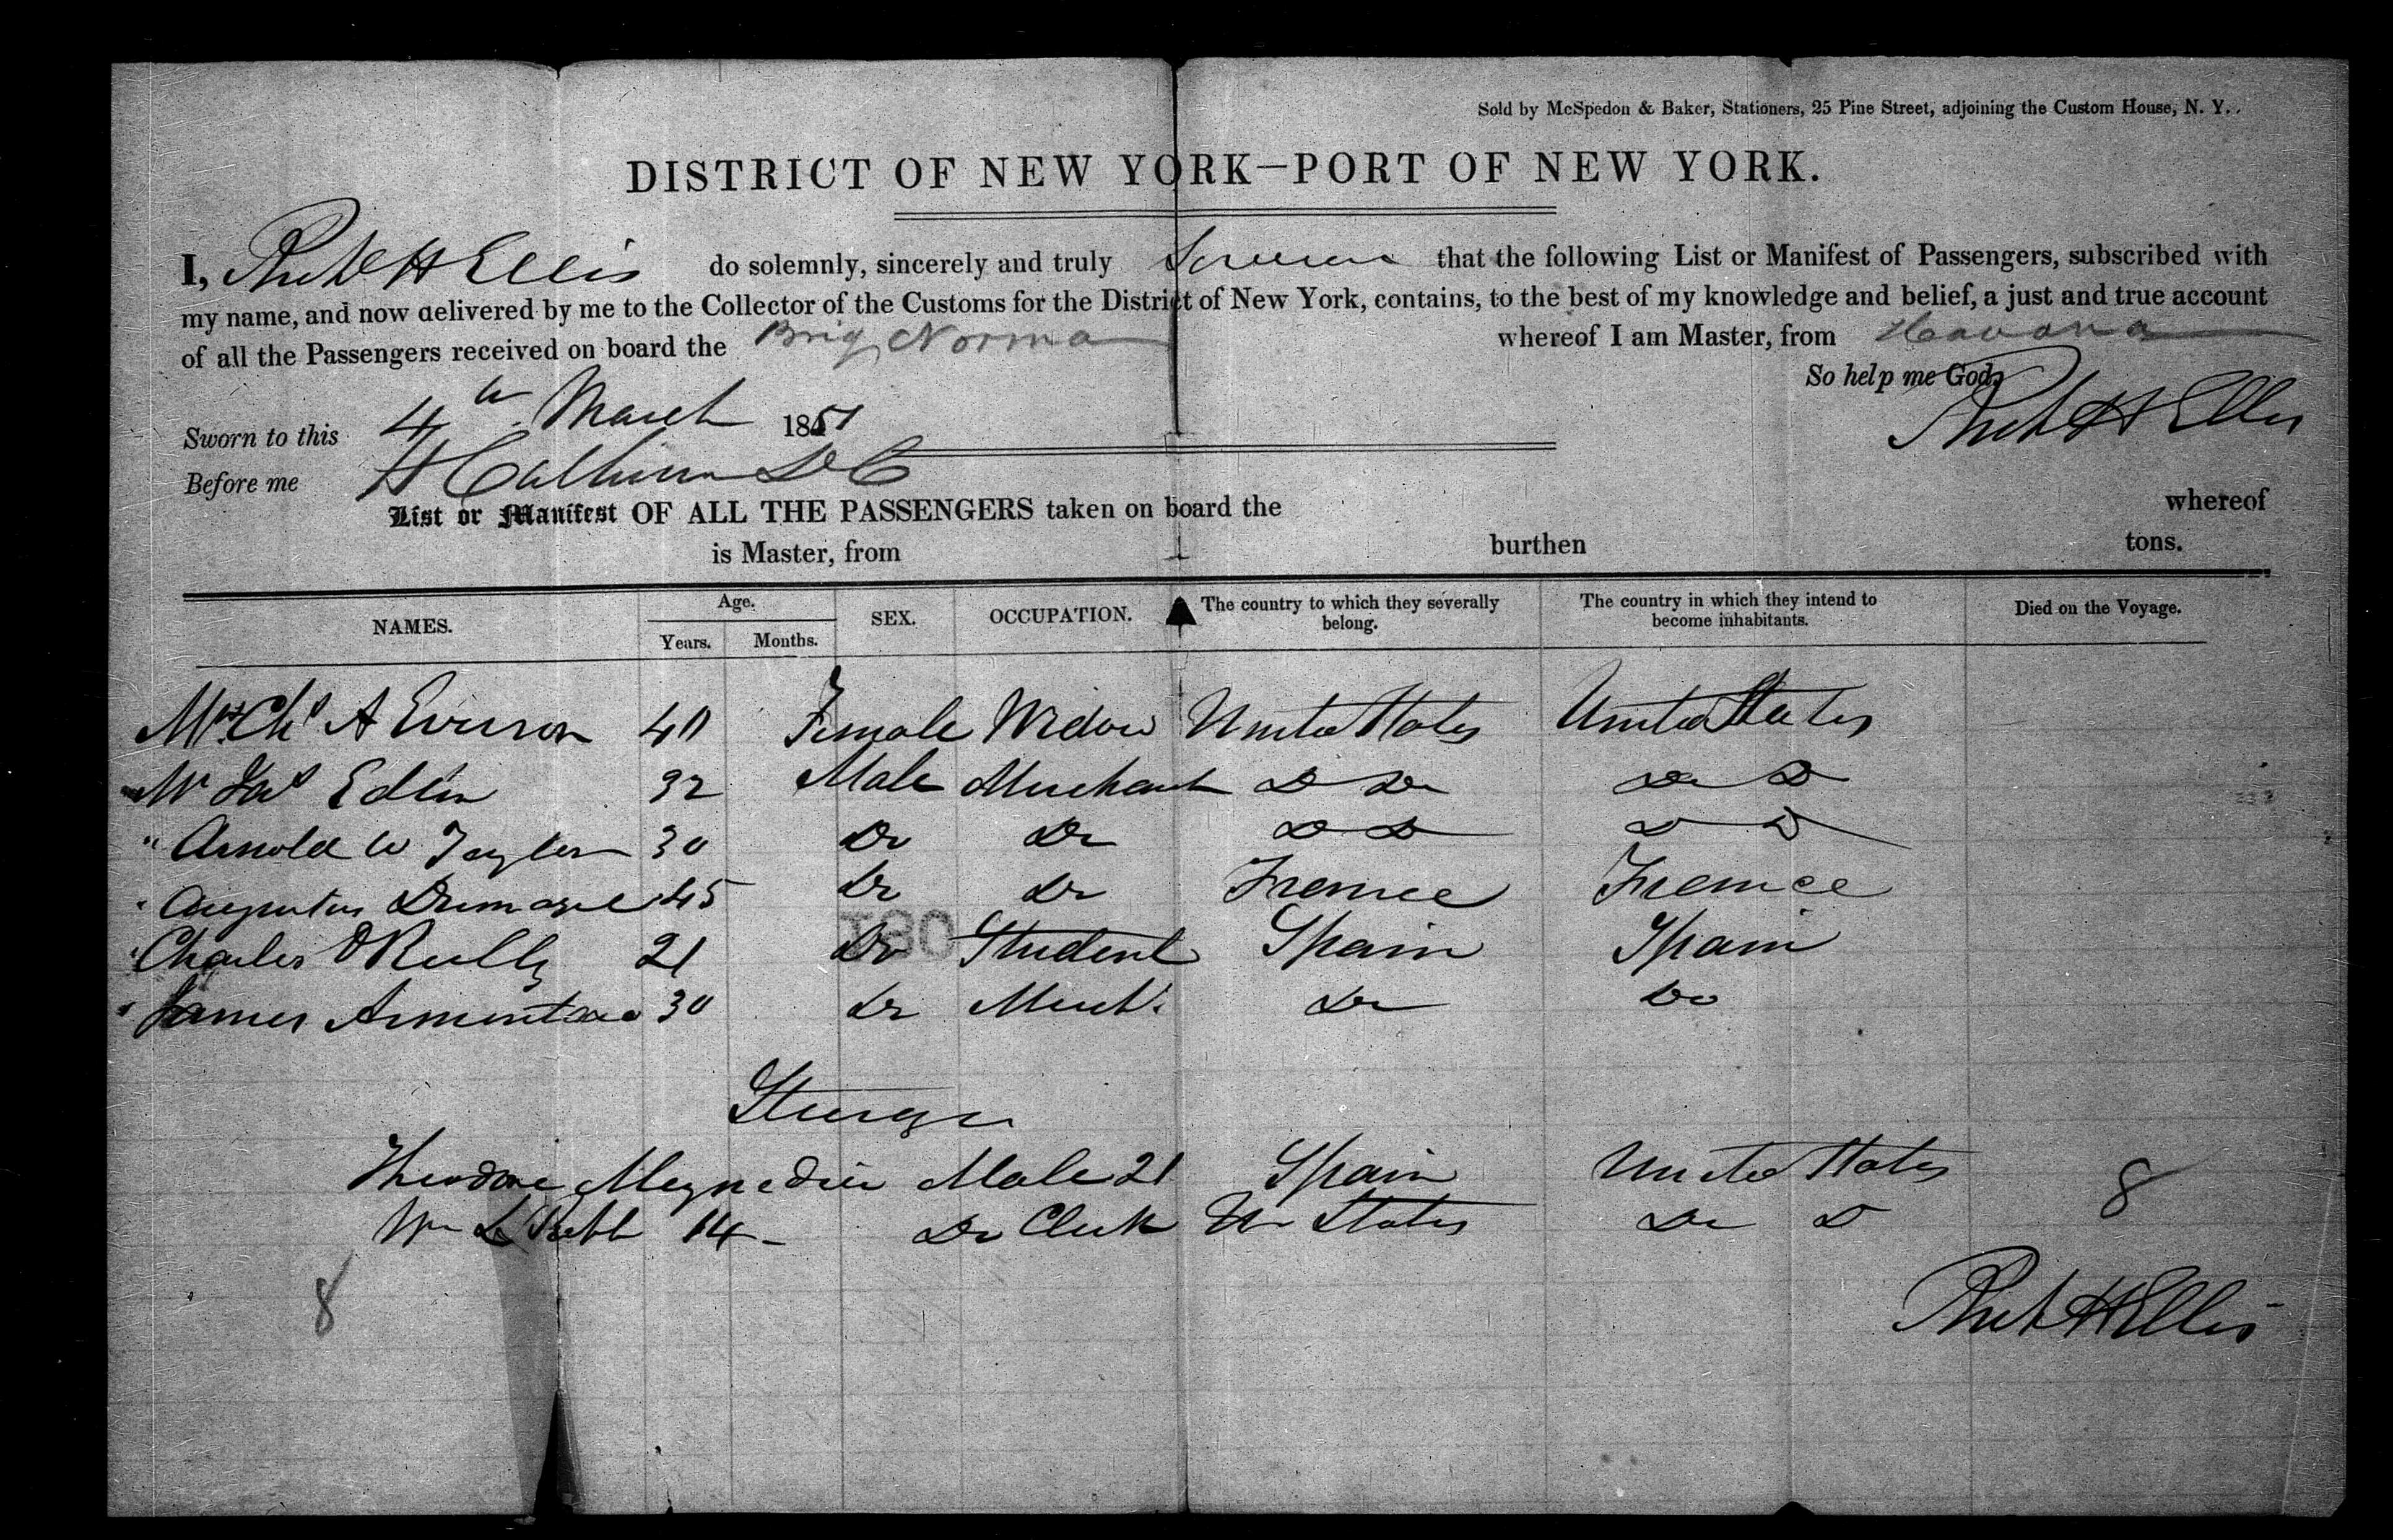 Sold by McSpedon & Baker, Stationers, 25 Pine Street, adjoining the Custom House, N. Y.
DISTRICT OF NEW YORK—PORT OF NEW YORK.
I, H Ellis do solemnly, sincerely and truly that the following List or Manifest of Passengers, subscribed with
my name, and now delivered by me to the Collector of the Customs for the District of New York, contains, to the best of my knowledge and belief, a just and true account
of all the Passengers received on board the Brig Norma whereof I am Master, from Havana
So help me God.
Sworn to this 4th March 1851
H Ellis
Before me H Calhoun D C
List or Manifest OF ALL THE PASSENGERS taken on board the whereof
is Master, from burthen tons.
NAMES. Age. Years. Months. SEX. OCCUPATION. The country to which they severally belong. The country in which they intend to become inhabitants. Died on the Voyage.
Mrs Chs A 40 Female Widow United States United States
Mr Jas Edlin 32 Male Merchant Do Do Do Do
" Arnold W Taylor 30 Do Do Do Do Do Do
" Augustus 45 Do Do France France
" Charles O Reilly 21 Do Student Spain Spain
" James 30 Do Mercht. Do Do
130
Steerage
Theodore Male 21 Spain United States
Wm L 14 - Do Clerk U States Do Do
8
8
H Ellis